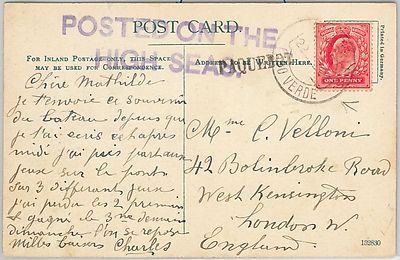 POSTED ON THE
HIGH SEAS
POST CARD.
FOR INLAND POSTAGE ONLY, THIS SPACE
MAY BE USED FOR CORRESPONDENCE.
TO BE WRITTEN HERE.
PAQUEBOT
VERDE
ONE PENNY
Printed in Germany.
Chère Mathilde
je t'envoie ce souvenir
du bateau depuis que
je t'ai écris cet après
midi j'ai pris part aux
jeux sur le pont
sur 3 differants jeux
j'ai perdu les 2 premier
& gagné le 3me demain
dimanche l'on se repose
Milles baisers Charles
Mme C. Velloni
42 Bolinbroke Road
West Kensington
London W.
England
132830